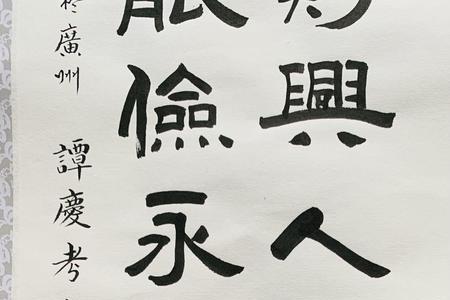 興人
能儉永
於廣州 譚慶考